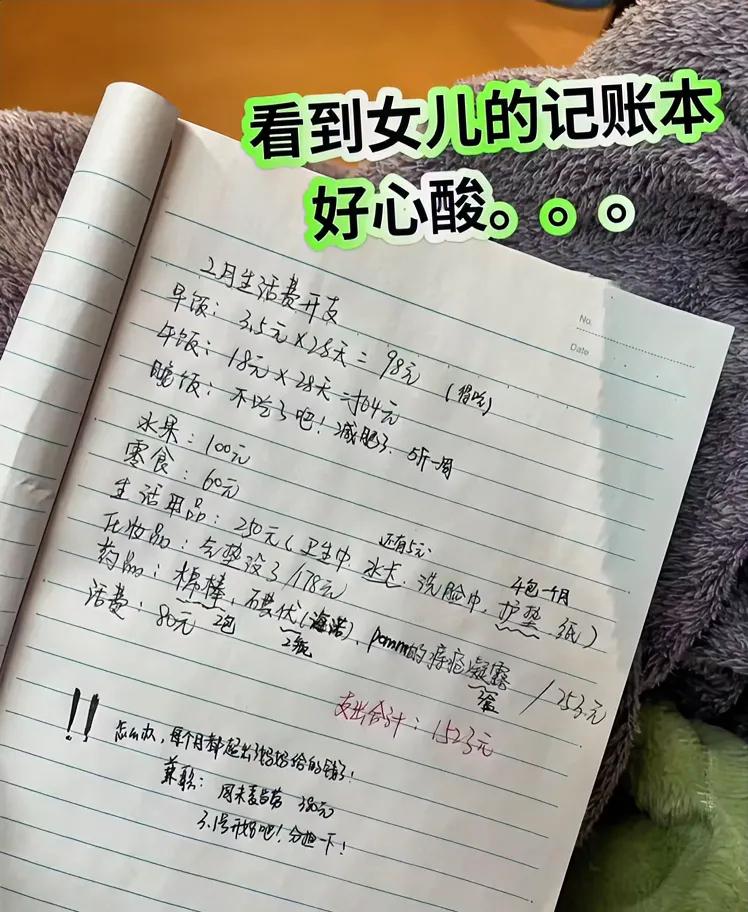 看到女儿的记账本
好心酸。。。
No.
Date
2月生活费开支
早饭：3.5元×28天=98元
午饭：18元×28天=504元（得吃）
晚饭：不吃了吧！减肥了.5斤一周
水果：100元
零食：60元
还有5元.
4包一个月
生活用品：250元（卫生巾 水卡.洗脸巾.护垫 纸）
化妆品：气垫没了/178元
药品：棉棒，碘伏（海诺）、pomm的痔疮凝露/253元
2包
2瓶
2盒
话费：80元
支出合计：1523元
!! 怎么办，每个月都超出了妈妈给的钱了！
兼职：周末麦当劳 380元
3.1号开始吧！分担一下！